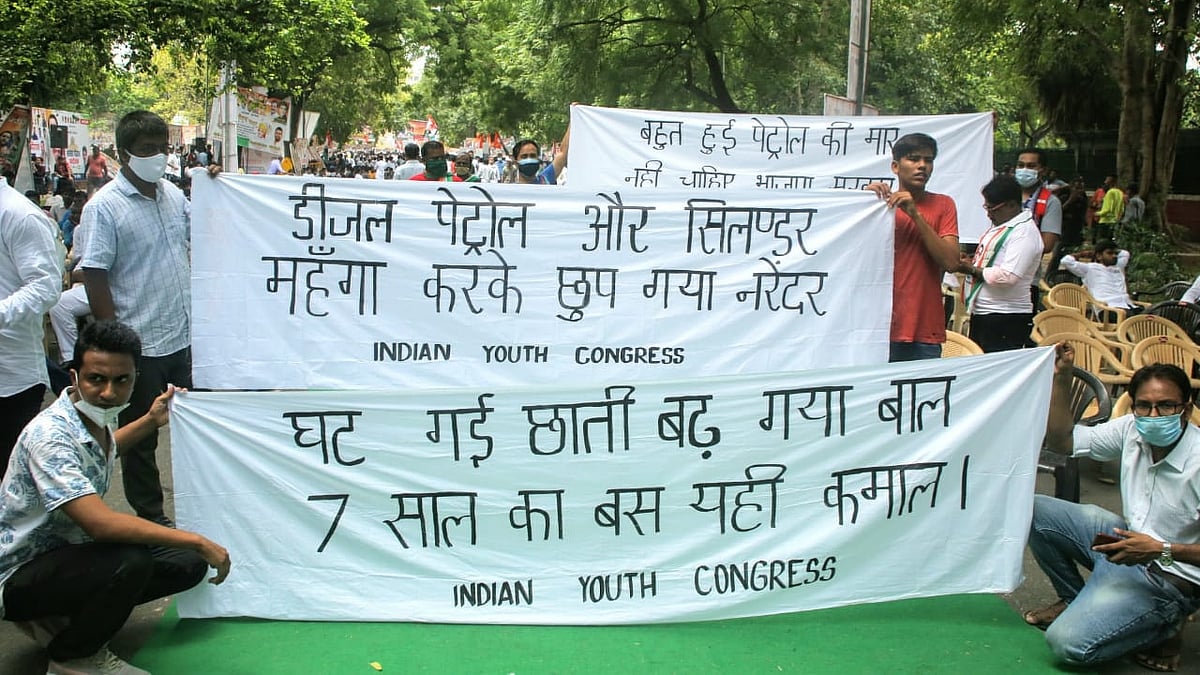 बहुत हुई पेट्रोल की मार
नही चाहिए भाजपा सरकार
डीजल पेट्रोल और सिलण्डर
महँगा करके छुप गया नरेंदर
INDIAN YOUTH CONGRESS
घट गई छाती बढ़ गया बाल
7 साल का बस यही कमाल।
INDIAN YOUTH CONGRESS